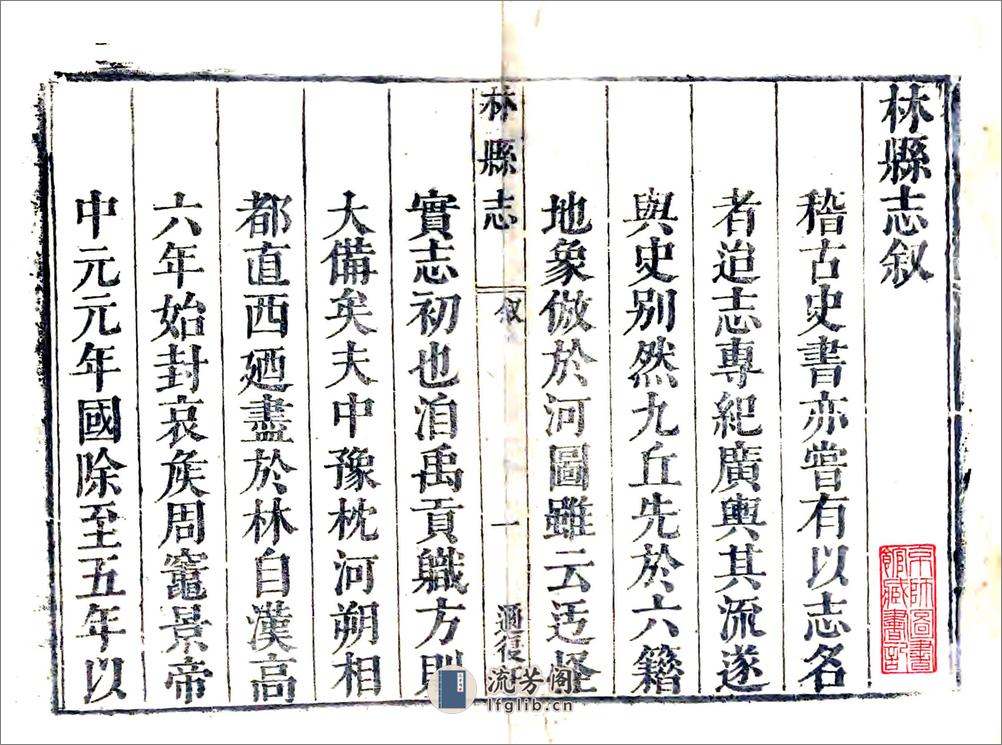 林縣志叙
稽古史書亦嘗有以志名
者迨志專紀廣輿其流遂
與史别然九丘先於六籍
地象倣於河圖雖云迂怪
林縣志
叙
一
實志初也洎禹貢職方則
大備矣夫中豫枕河朔相
都直西廼盡於林自漢高
六年始封哀矦周竈景帝
中元元年國除至五年以
京師圖書
館藏書記
流芳阁
lfglib.cn